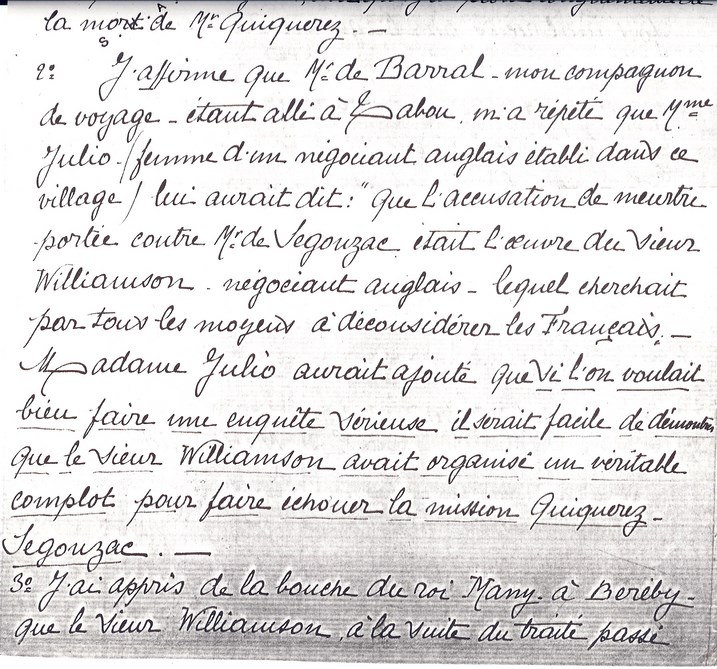 la mort de Mr Quiquerez. —
2º J'affirme que Mr de Barral - mon compagnon
de voyage - étant allé à Tabou, m'a répété que Mme
Julio - (femme d'un négociant anglais établi dans ce
village) lui aurait dit : " que l'accusation de meurtre
portée contre Mr de Segonzac était l'œuvre du sieur
Williamson - négociant anglais - lequel cherchait
par tous les moyens à déconsidérer les Français. —
Madame Julio aurait ajouté que si l'on voulait
bien faire une enquête sérieuse il serait facile de démontrer
que le sieur Williamson avait organisé un véritable
complot pour faire échouer la mission Quiquerez -
Segonzac. —
3º J'ai appris de la bouche du roi Many - à Béréby -
que le sieur Williamson, à la suite du traité passé